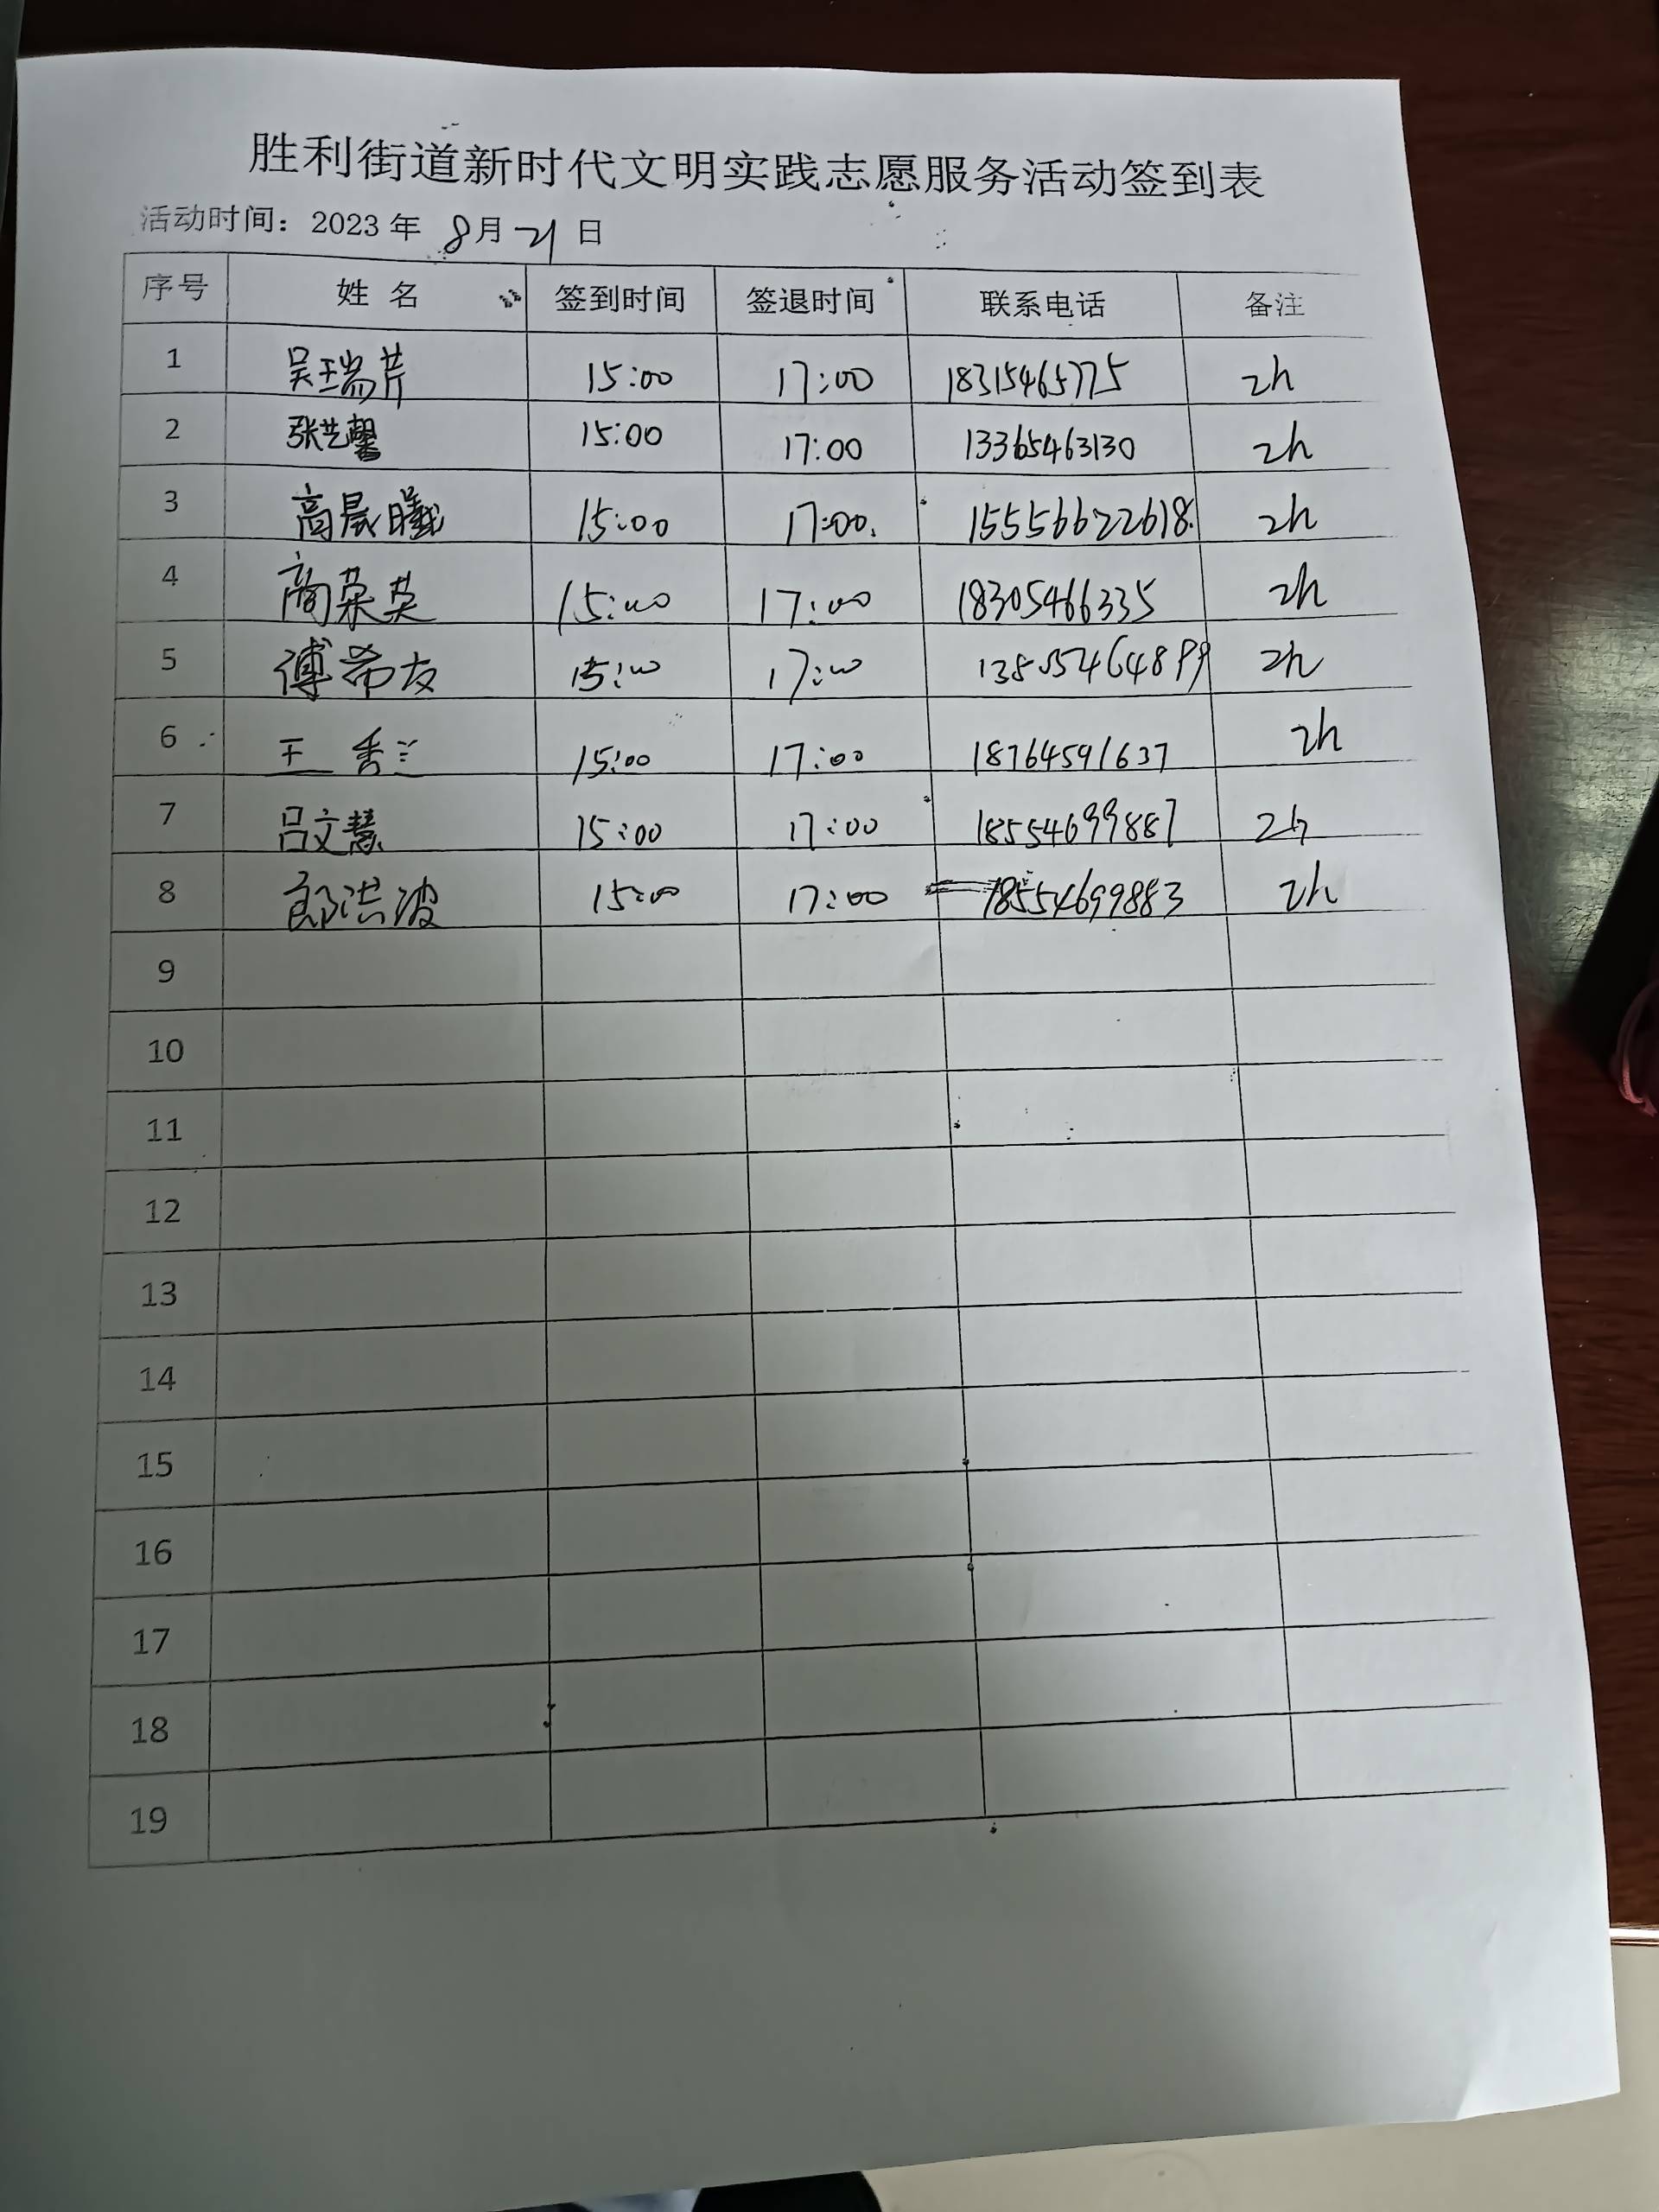 胜利街道新时代文明实践志愿服务活动签到表
活动时间：2023 年 8月 21 日
序号 姓 名 签到时间 签退时间 联系电话 备注
1 吴瑞芹 15:00 17:00 18315465775 2h
2 张艺馨 15:00 17:00 13365463130 2h
3 高晨曦 15:00 17:00. 15556622618. 2h
4 商荣英 15:00 17:00 18305466335 2h
5 傅希友 15:00 17:00 2h
6 王秀兰 15:00 17:00 18764591637 2h
7 吕文慧 15:00 17:00 18554699887 2h
8 郎洪波 15:00 17:00 18554699883 2h
9
10
11
12
13
14
15
16
17
18
19